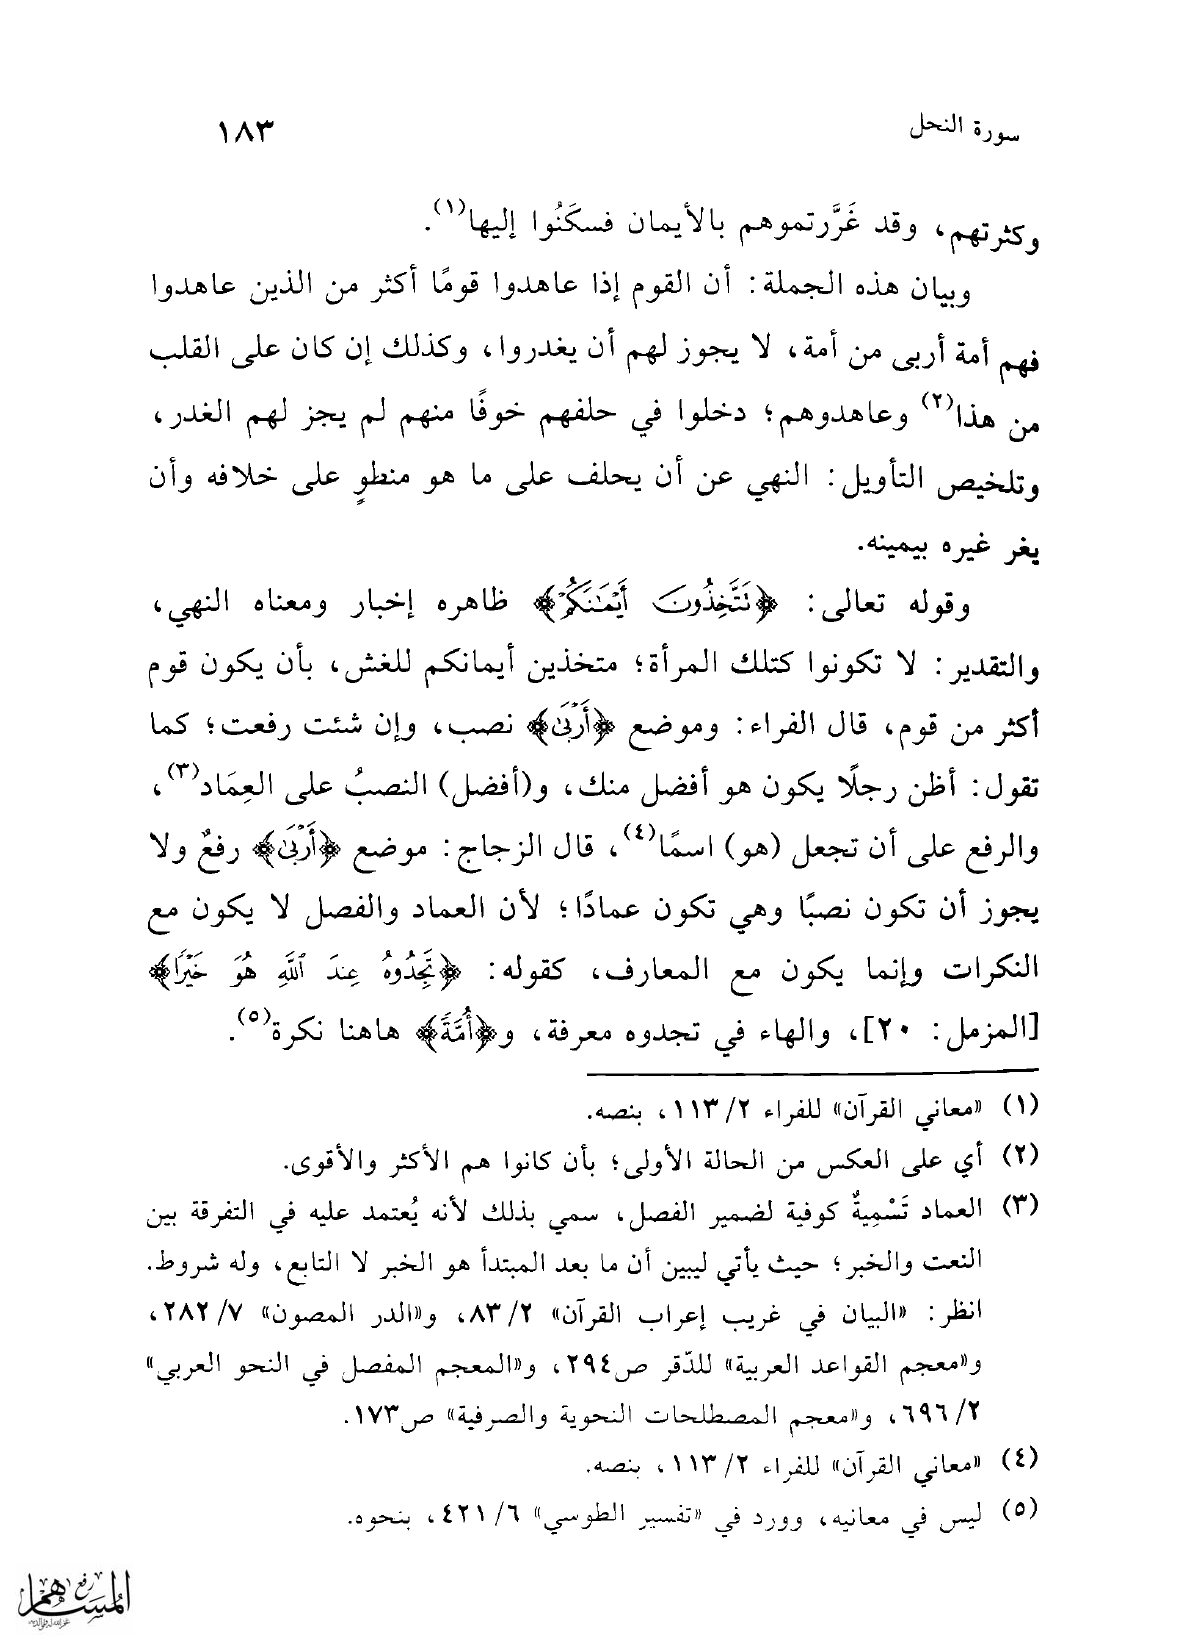 سورة النحل ١٨٣
وكثرتهم، وقد غَرَّرتموهم بالأيمان فسكَنُوا إليها(١).
وبيان هذه الجملة: أن القوم إذا عاهدوا قومًا أكثر من الذين عاهدوا
فهم أمة أربى من أمة، لا يجوز لهم أن يغدروا، وكذلك إن كان على القلب
من هذا(٢) وعاهدوهم؛ دخلوا في حلفهم خوفًا منهم لم يجز لهم الغدر،
وتلخيص التأويل: النهي عن أن يحلف على ما هو منطوٍ على خلافه وأن
يغر غيره بيمينه.
وقوله تعالى: ﴿تَتَّخِذُونَ أَيْمَٰنَكُمْ﴾ ظاهره إخبار ومعناه النهي،
والتقدير: لا تكونوا كتلك المرأة؛ متخذين أيمانكم للغش، بأن يكون قوم
أكثر من قوم، قال الفراء: وموضع ﴿أَرْبَىٰ﴾ نصب، وإن شئت رفعت؛ كما
تقول: أظن رجلًا يكون هو أفضل منك، و(أفضل) النصبُ على العِمَاد(٣)،
والرفع على أن تجعل (هو) اسمًا(٤)، قال الزجاج: موضع ﴿أَرْبَىٰ﴾ رفعٌ ولا
يجوز أن تكون نصبًا وهي تكون عمادًا؛ لأن العماد والفصل لا يكون مع
النكرات وإنما يكون مع المعارف، كقوله: ﴿تَجِدُوهُ عِندَ ٱللَّهِ هُوَ خَيْرًا﴾
[المزمل: ٢٠]، والهاء في تجدوه معرفة، و﴿أُمَّةٌ﴾ هاهنا نكرة(٥).
(١) «معاني القرآن» للفراء ٢/ ١١٣، بنصه.
(٢) أي على العكس من الحالة الأولى؛ بأن كانوا هم الأكثر والأقوى.
(٣) العماد تَسْمِيةٌ كوفية لضمير الفصل، سمي بذلك لأنه يُعتمد عليه في التفرقة بين
النعت والخبر؛ حيث يأتي ليبين أن ما بعد المبتدأ هو الخبر لا التابع، وله شروط.
انظر: «البيان في غريب إعراب القرآن» ٢/ ٨٣، و«الدر المصون» ٧/ ٢٨٢،
و«معجم القواعد العربية» للدّقر ص٢٩٤، و«المعجم المفصل في النحو العربي»
٢/ ٦٩٦، و«معجم المصطلحات النحوية والصرفية» ص١٧٣.
(٤) «معاني القرآن» للفراء ٢/ ١١٣، بنصه.
(٥) ليس في معانيه، وورد في «تفسير الطوسي» ٦/ ٤٢١، بنحوه.